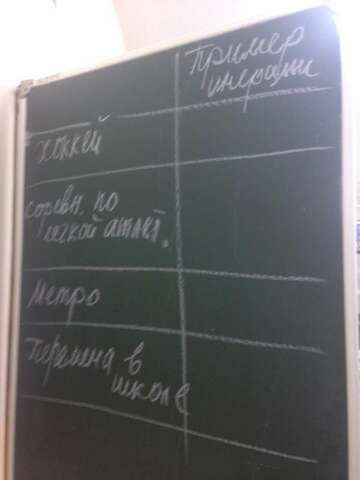 Пример
инерции
хоккей
соревн. по
легкой атлет.
Метро
Перемена в
школе